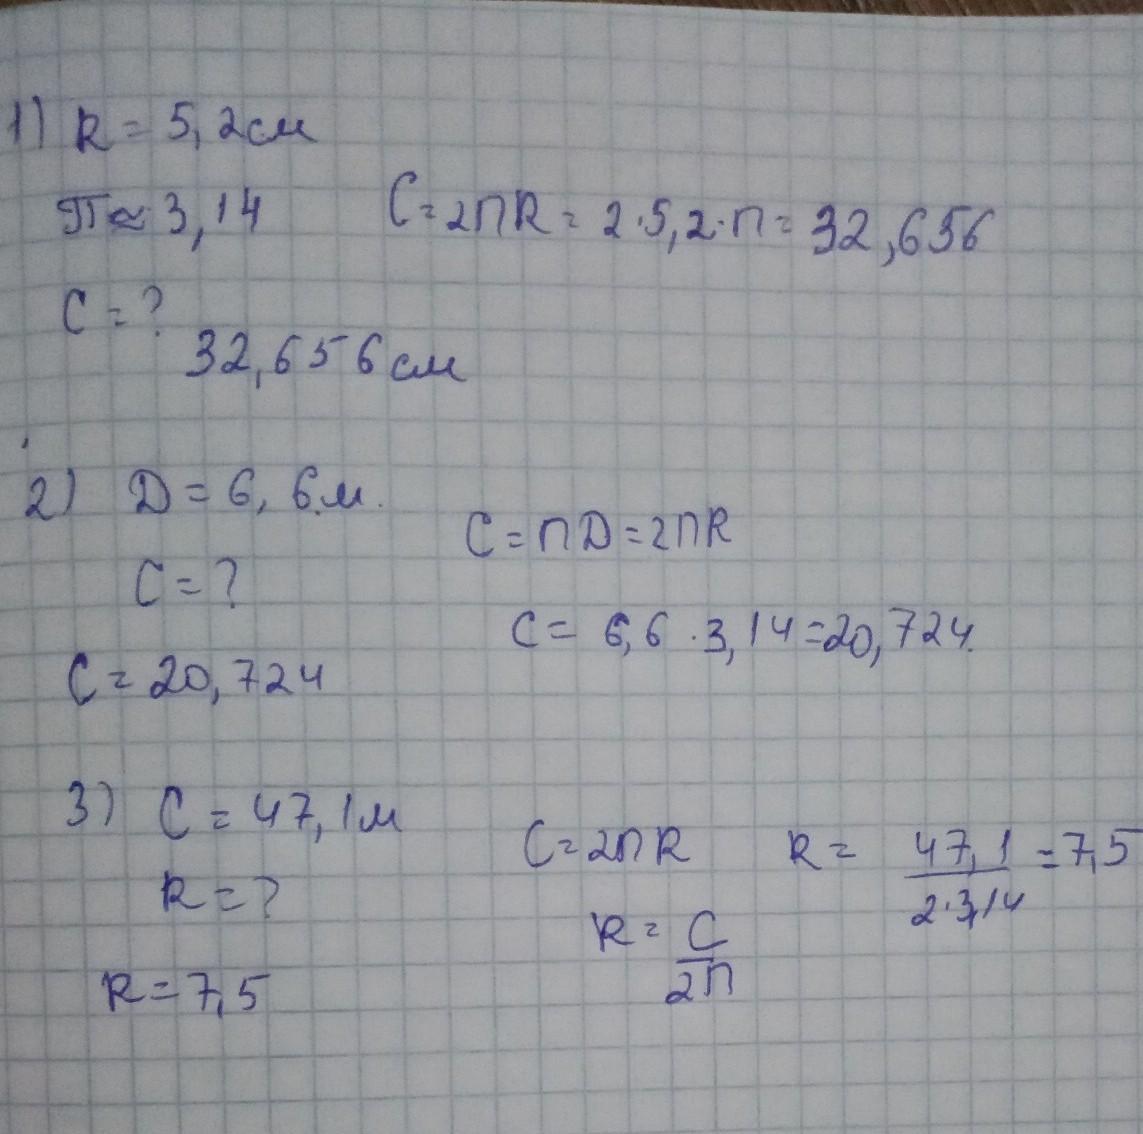 1) R = 5,2 см
π ≈ 3,14 C = 2πR = 2·5,2·π = 32,656
C = ?
32,656 см
2) D = 6,6 м.
C = πD = 2πR
C = ?
C = 6,6 · 3,14 = 20,724.
C = 20,724
3) C = 47,1 м
C = 2πR R = 47,1 / 2·3,14 = 7,5
R = ?
R = C / 2π
R = 7,5